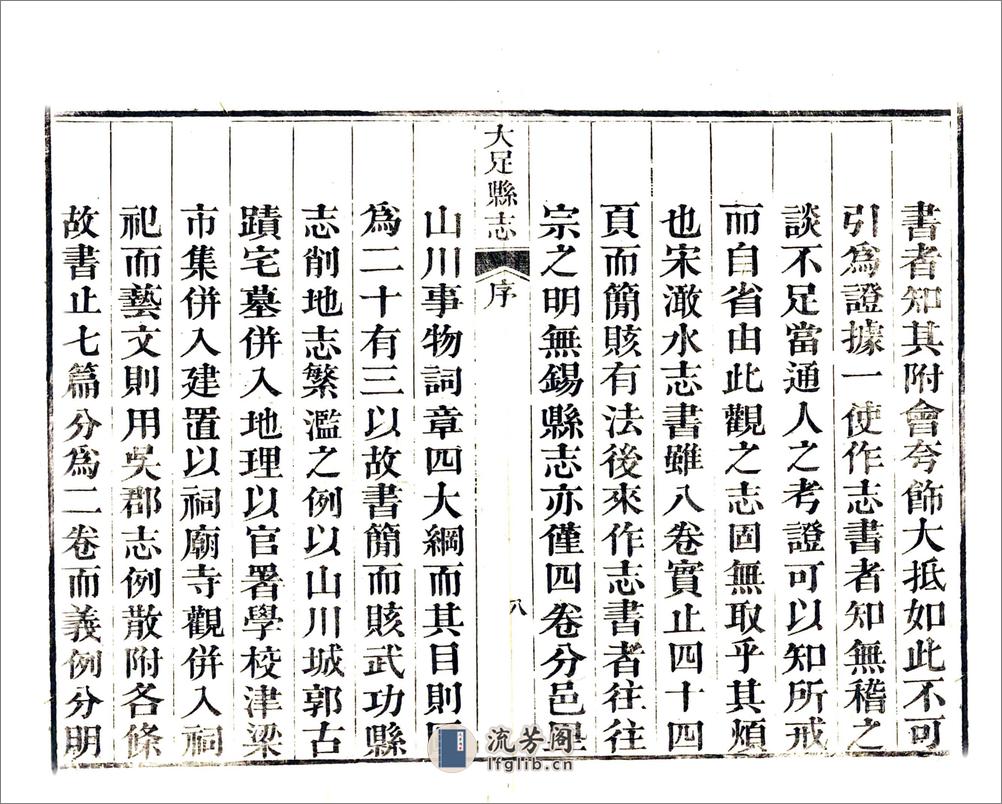 書者知其附會夸飾大抵如此不可
引爲證據一使作志書者知無稽之
談不足當通人之考證可以知所戒
而自省由此觀之志固無取乎其煩
也宋澉水志書雖八卷實止四十四
頁而簡賅有法後來作志書者往往
宗之明無錫縣志亦僅四卷分邑里
大足縣志
序
八
山川事物詞章四大綱而其目則
爲二十有三以故書簡而賅武功縣
志削地志繁濫之例以山川城郭古
蹟宅墓併入地理以官署學校津梁
市集併入建置以祠廟寺觀併入祠
祀而藝文則用吳郡志例散附各條
故書止七篇分爲二卷而義例分明
流芳阁
lfglib.cn